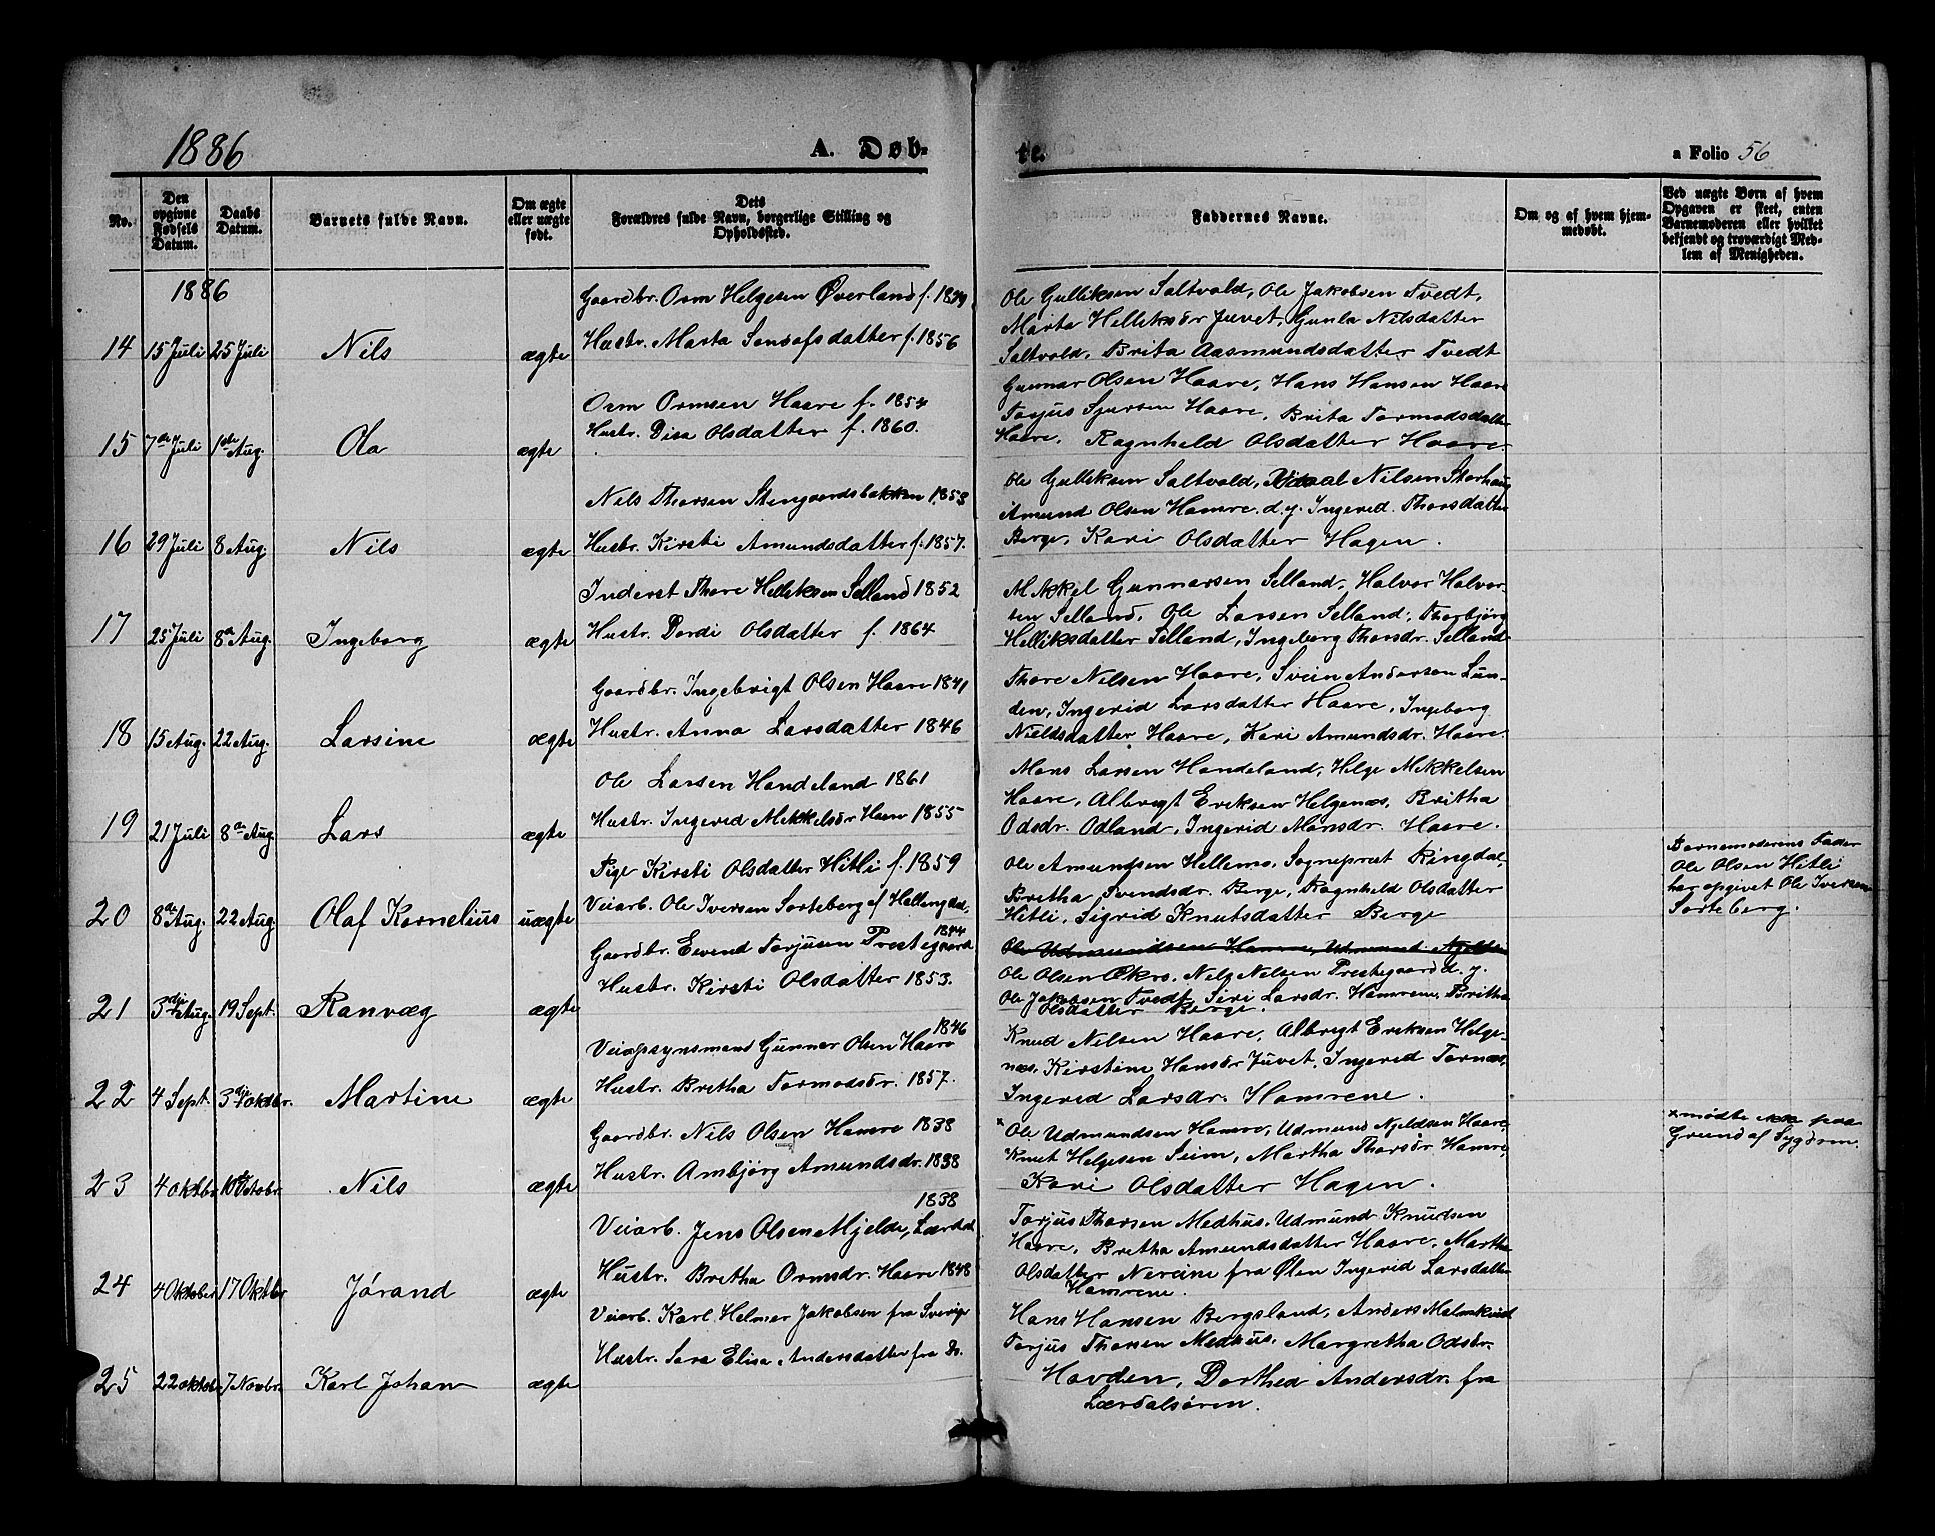 1886
A. Døb-
te.
a Folio 56
No.
Den opgivne Fødsels Datum.
Daabs Datum.
Barnets fulde Navn.
Om ægte eller uægte født.
Dets Forældres fulde Navn, borgerlige Stilling og Opholdssted.
Faddernes Navne.
Om og af hvem hjem-
medøbt.
Ved uægte Børn af hvem
Opgaven er skeet, enten
Barnemoderen eller hvilket
bekjendt og troværdigt Med-
lem af Menigheden.
1886
Gaardbr. Orm Helgesen Øverland f. 1849
Hustr. Marta Sondofsdatter f. 1856
14 15 Juli 25 Juli Nils ægte
Ole Gulliksen Saltvold, Ole Jakobsen Tvedt,
Marta Helliksdr Juvet, Gunla Nilsdatter
Saltvold, Brita Aasmundsdatter Tvedt
Orm Ormsen Haare f. 1854
Hustr. Disa Olsdatter f. 1860.
15 7de Juli 1ste Aug. Ola ægte
Gunnar Olsen Haare, Hans Hansen Haare
Torjus Sjursen Haare, Brita Tormodsdatter
Haare, Ragnheld Olsdatter Haare.
Nils Thorsen Stengaardsbakken 1853
16 29 Juli 8 Aug. Nils ægte Hustr. Kirsti Amundsdatter f. 1857.
Ole Gulliksen Saltvold, Nilsen Storhaug
Amund Olsen Hamre d. y. Ingerid Thorsdatter
Berge, Kari Olsdatter Hagen.
Inderst Thore Helliksen Selland 1852
17 25 Juli 8de Aug. Ingeborg ægte Hustr. Dordi Olsdatter f. 1864
Mikkel Gunnarsen Selland, Halvor Halvor-
sen Selland, Ole Larsen Selland, Thorbjørg
Helliksdatter Selland, Ingeborg Thorsdr. Selland
Gaardbr. Ingebrigt Olsen Haare 1841
18 15 Aug. 22 Aug. Larsine ægte Hustr. Anna Larsdatter 1846
Thore Nilsen Haare, Svein Andersen Lun-
den, Ingerid Larsdatter Haare, Ingeborg
Nieldsdatter Haare, Kari Amundsdr. Haare.
Ole Larsen Handeland 1861
19 21 Juli 8de Aug. Lars ægte Hustr. Ingerid Mekkelsdr Haare 1855
Mons Larsen Handeland, Helge Mikkelsen
Haare, Albregt Eriksen Helgenæs, Britha
Odsdr. Odland, Ingerid Monsdr. Haare.
Pige Kirsti Olsdatter Hitli f. 1859
20 8de Aug. 22 Aug. Olaf Kornelius uægte Veiarb. Ole Iversen Sorteberg af Hallingdal,
1844
Ole Amundsen Hellemo, Sogneprest Ringdal,
Bretha Svendsdr. Berge, Ragnheld Olsdatter
Hitli, Sigrid Knutsdatter Berge
Barnemoderens Fader
Ole Olsen Hitli
har opgivet Ole Iversen
Sorteberg.
Gaardbr. Eivend Torjusen Prestegaard
Hustr. Kirsti Olsdatter 1853.
21 3die Aug. 19 Sept. Ranvæg ægte
Ole Udmundsen Hamre, Udmund Njeldsen
Ole Olsen Ekro, Nels Nelsen Prestegaard d. y.
Ole Jakobsen Tvedt, Siri Larsdr. Hamrene, Britha
Olsdatter Berge.
1846
Veiopsynsmand Gunnar Olsen Haare
22 4 Sept. 3die Oktbr. Martine ægte Hustr. Bretha Tormodsdr. 1857.
Knud Nelsen Haare, Albregt Eriksen Helge-
næs, Kirstine Hansdr Juvet, Ingerid Tornæs,
Ingerid Larsdr. Hamrene.
Gaardbr. Nils Olsen Hamre 1838
23 4 Oktbr. 10de Octobr. Nils ægte Hustr. Ambjørg Amundsdr. 1838
× Ole Udmundsen Hamre, Udmund Njeldsen Haare,
Knut Helgesen Seim, Martha Thorsdr Hamre,
Kari Olsdatter Hagen.
× mødte ikke paa
Grund af Sygdom.
1838
Veiarb. Jens Olsen Mjelde, Lærdal
24 4 Oktober 17 Oktbr Jørand ægte Hustr. Bretha Ormsdr. Haare 1848
Torjus Thorsen Medhus, Udmund Knudsen
Haare, Bretha Amundsdatter Haare, Martha
Olsdatter Nercine fra Ølen Ingerid Larsdatter
Hamrene.
Veiarb. Karl Helmer Jakobsen fra Sverige
Hustr. Sara Elisa Andersdatter fra Do.
25 22 Oktob. 7 Novbr. Karl Johan ægte
Hans Hansen Bergsland, Anders Malmkvist
Torjus Thorsen Medhus, Margretha Odsdr.
Hovden, Dorthea Andersdr. fra
Lærdalsøren.